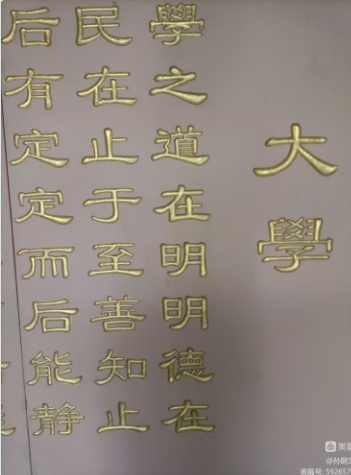 大學
學之道在明明德在
民在止于至善知止
后有定定而后能静
美篇号: 592657